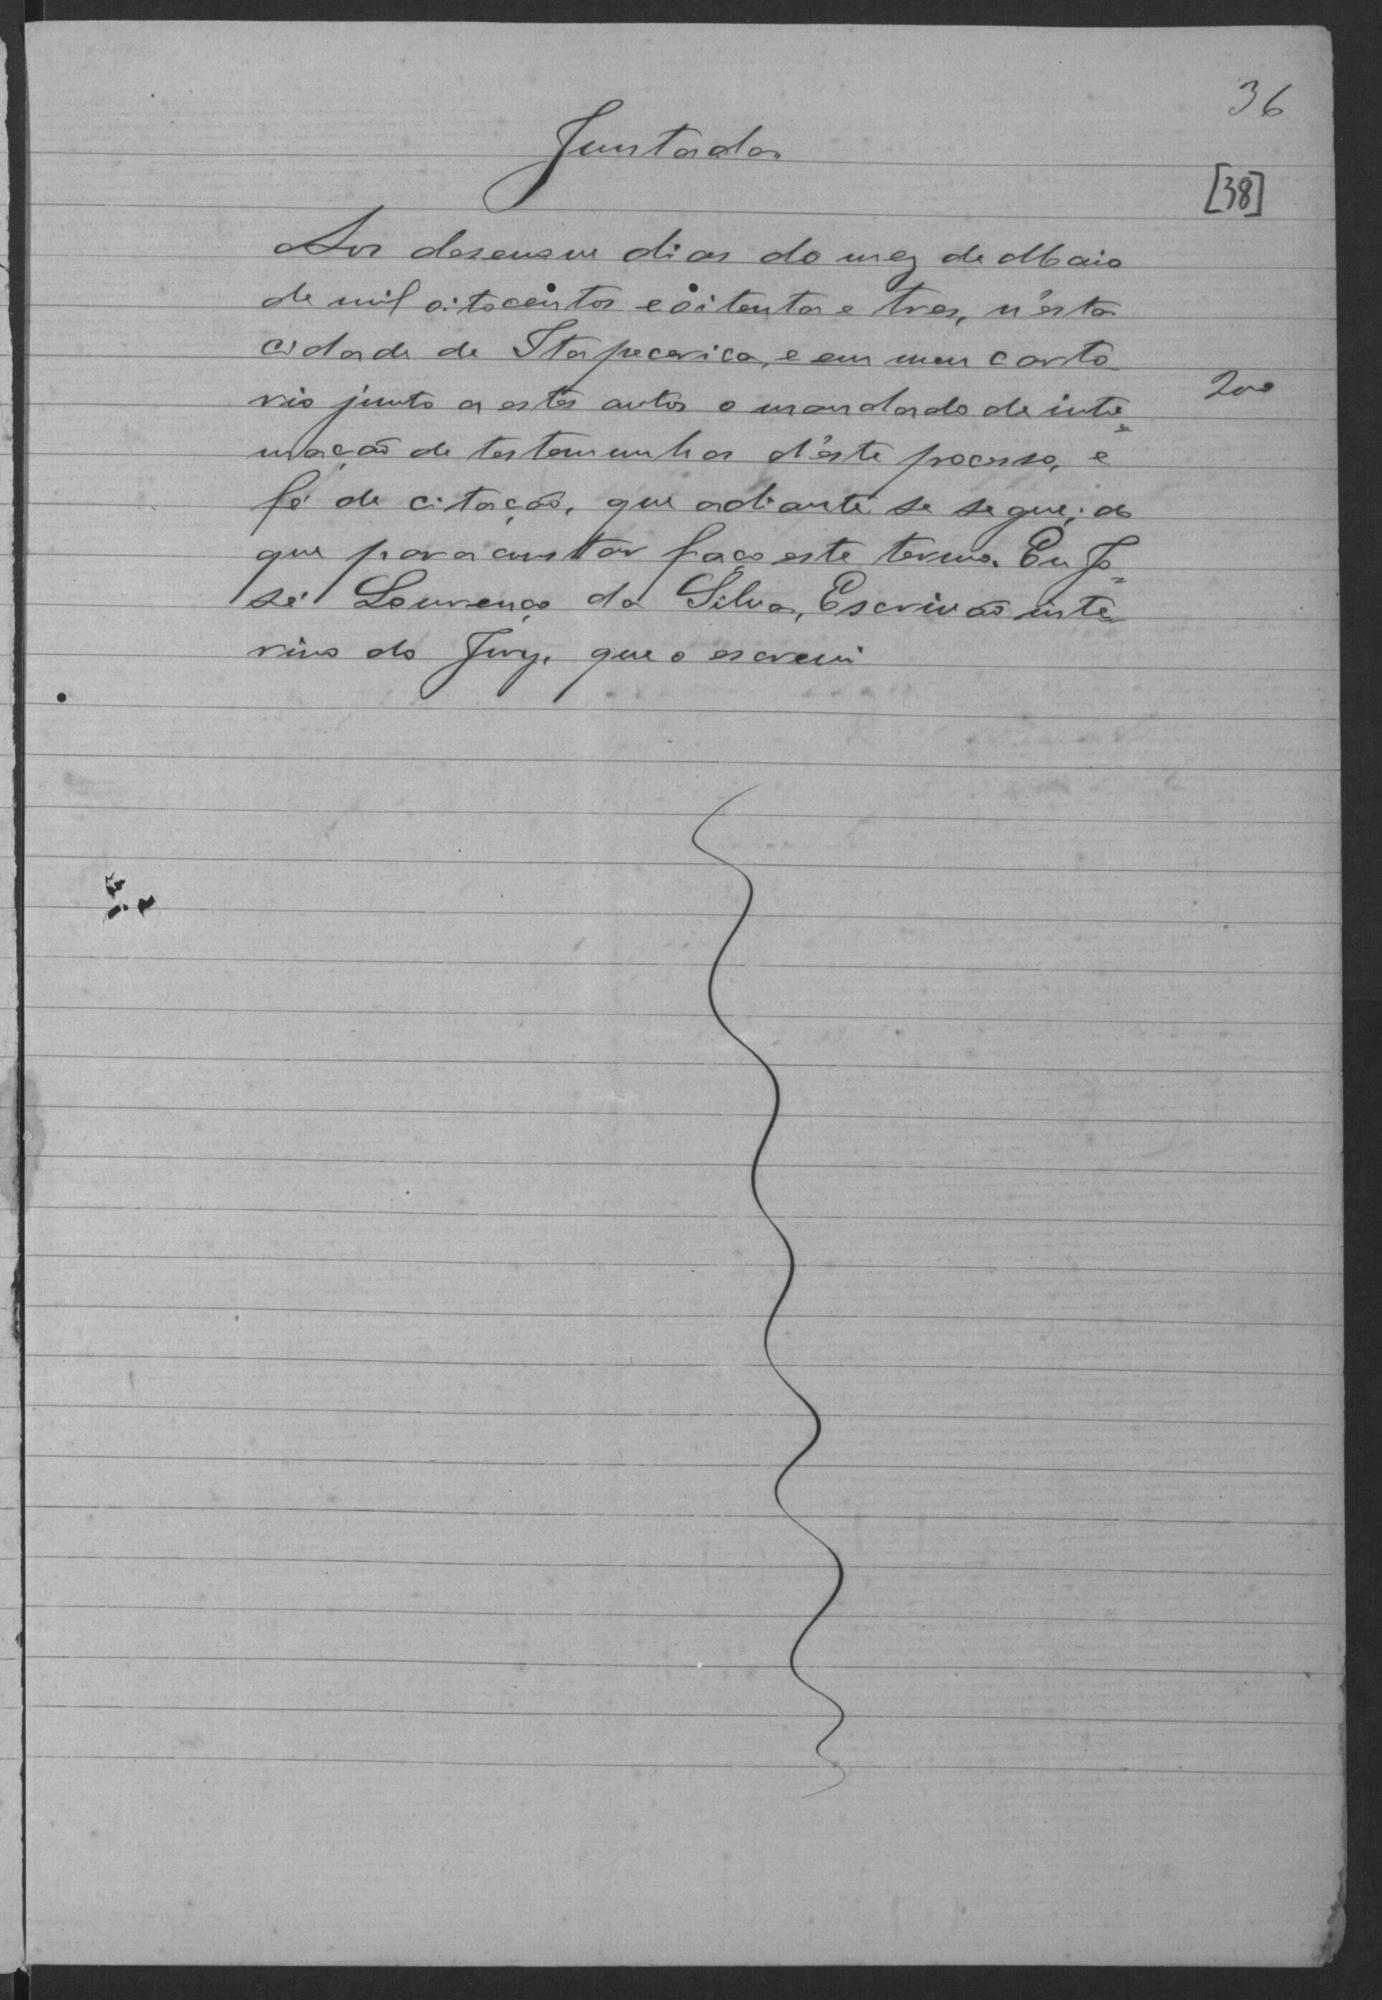 36
Juntada
[38]
Aos desenove dias do mez de Maio
de mil oitocentos e oitenta e tres, n'esta
cidade de Itapecerica, e em meu carto
rio junto a estes autos o mandado de inti= 200
mação de testemunhas d'este processo, e
fé de citação, que adiante se segue; do
que para constar faço este termo. Eu Jo=
sé Lourenço da Silva, Escrivão inte
rino do Jury, que o escrevi